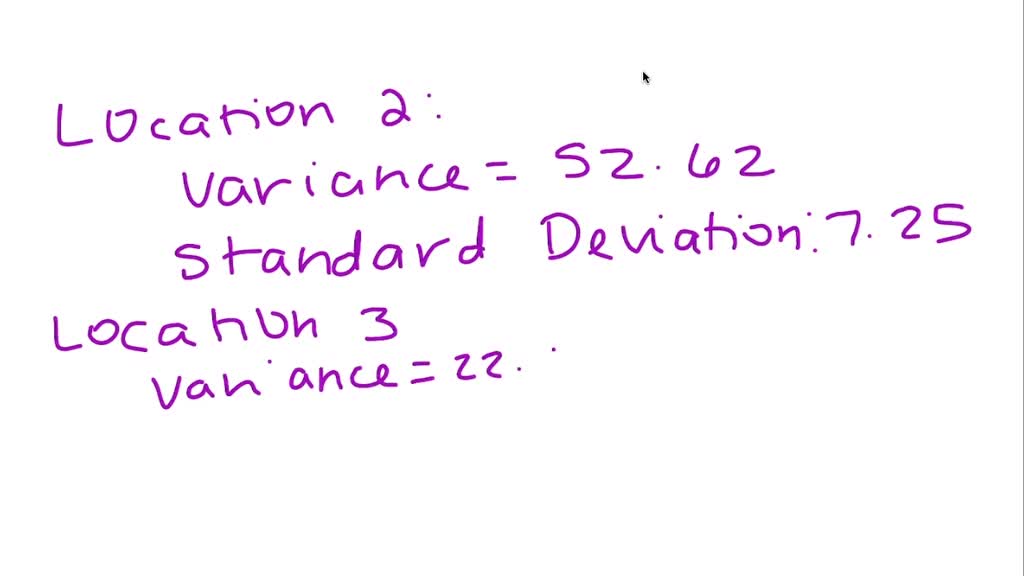 Location 2:
variance = 52.62
Standard Deviation: 7.25
Location 3
variance = 22.